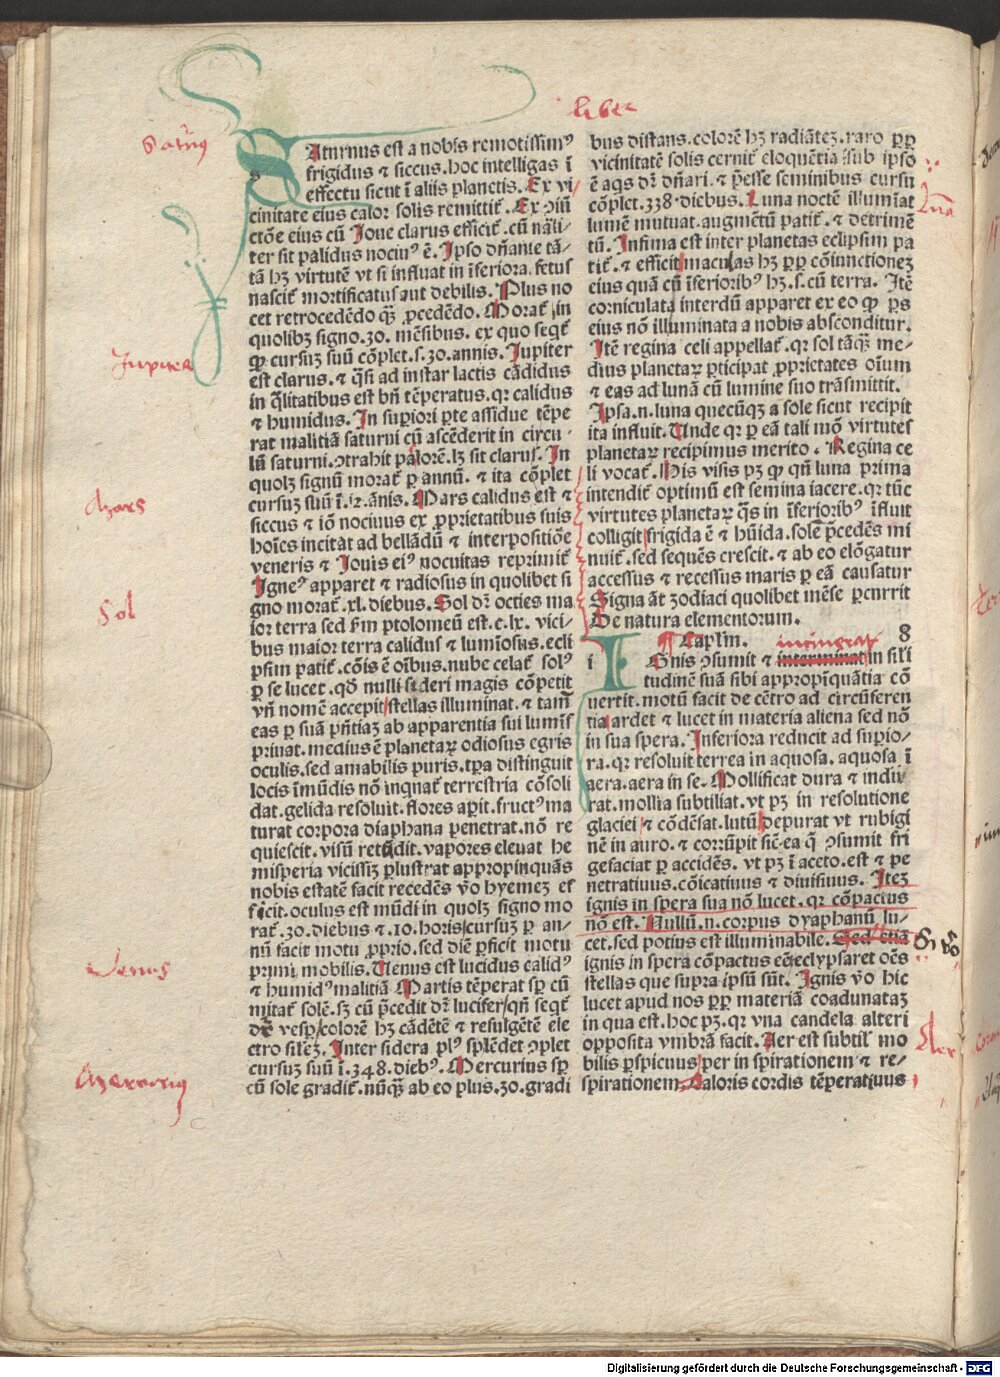 liber
Saturnus
SAturnus est a nobis remotissimꝰ
frigidus ⁊ siccus. hoc intelligas ī
effectu sicut ī aliis planetis. Ex vi
cinitate eius calor solis remittit̄. Ex ꝯiū
ctōe eius cū Ioue clarus efficit̄. cū nāli-
ter sit palidus nociuꝰ ē. Ipso dn̄ante tā-
tā hꝫ virtutē vt si influat in īferiora. fetus
nascit̄ mortificatus aut debilis. Plus no
cet retrocedēdo qꝫ ꝓcedēdo. Morat̄ in
quolibꝫ signo .30. mēsibus. ex quo seqt̄
ꝙ cursuꝫ suū cōplet .s. 30. annis. Jupiter
est clarus. ⁊ q̄si ad instar lactis cādidus
in q̄litatibus est bn̄ tēperatus. qꝛ calidus
⁊ humidus. In suꝑiori ꝑte assidue tēpe
rat malitiā saturni cū ascēderit in circu-
lū saturni. ꝯtrahit palorē. lꝫ sit clarus. In
quolꝫ signū morat̄ ꝑ annū. ⁊ ita cōplet
cursuꝫ suū ī .12. ānis. Mars calidus est ⁊
siccus ⁊ iō nociuus ex ꝓprietatibus suis
hoīes incitat ad bellādū ⁊ interpositiōe
veneris ⁊ Iouis eiꝰ nocuitas reprimit̄
Igneꝰ apparet ⁊ radiosus in quolibet si
gno morat̄ .xl. diebus. Sol dꝛ octies ma
ior terra sed ẜm ptolomeū est .c.lx. vici-
bus maior terra calidus ⁊ lumiōsus. ecli
psim patit̄. cōis ē oībus. nube celat̄ solꝰ
ꝑ se lucet. qd̄ nulli sideri magis cōpetit
vn̄ nomē accepit stellas illuminat. ⁊ tam̄
eas ꝑ suā pn̄tiaꝫ ab apparentia sui lumīs
priuat. medius ē planetaꝝ odiosus egris
oculis. sed amabilis puris. tꝑa distinguit
locis īmūdis nō inqnat̄ terrestria cōsoli
dat. gelida resoluit. flores aꝑit. fructꝰ ma
turat corpora diaphana penetrat. nō re
quiescit. visū retūdit. vapores eleuat he
misperia vicissiꝫ ꝑlustrat appropinquās
nobis estatē facit recedēs v̄o hyemeꝫ ef
ficit. oculus est mūdi in quolꝫ signo mo
rat̄ .30. diebus ⁊ .10. horis cursuꝫ ꝑ an-
nū facit motu ꝓprio. sed diē ꝑficit motu
primi mobilis. Uenus est lucidus calidꝰ
⁊ humidꝰ malitiā Martis tēperat sꝑ cū
mitat̄ solē. sꝫ cū p̄cedit dꝛ lucifer qn̄ seqt̄
dꝛ vesꝑ colorē hꝫ cādētē ⁊ refulgētē ele
ctro sil̄eꝫ. Inter sidera plꝰ splēdet ꝯplet
cursuꝫ suū ī .348. diebꝰ. Mercurius sꝑ
cū sole gradit̄. nūqꝫ ab eo plus .30. gradi
Jupiter
Mars
Sol
Venus
Mercurius
bus distans. colorē hꝫ radiāteꝫ. raro ꝓp
vicinitatē solis cernit̄ eloquētia sub ipso
ē aqs dꝛ dn̄ari. ⁊ p̄esse seminibus cursū
cōplet .338. diebus. Luna noctē illumīat
lumē mutuat. augmētū patit̄. ⁊ detrimē
tū. Infima est inter planetas eclipsim pa
tit̄. ⁊ efficit maculas hꝫ ꝓp cōiunctioneꝫ
eius quā cū īferioribꝰ hꝫ .s. cū terra. Itē
corniculata interdū apparet ex eo ꝙ ꝑs
eius nō illuminata a nobis absconditur.
Itē regina celi appellat̄. qꝛ sol tāqꝫ me-
dius planetaꝝ ꝑticipat ꝓprietates oīum
⁊ eas ad lunā cū lumine suo trāsmittit.
Ipsa .n. luna quecūqꝫ a sole sicut recipit
ita influit. Unde qꝛ ꝑ eā tali mō virtutes
planetaꝝ recipimus merito. Regina ce
li vocat̄. His visis pꝫ ꝙ qn̄ luna prima
intendit̄ optimū est semina iacere. qꝛ tūc
virtutes planetaꝝ q̄s in īferioribꝰ īfluit
colligit frigida ē ⁊ hūida. solē p̄cedēs mi
nuit̄. sed sequēs crescit. ⁊ ab eo elōgatur
accessus ⁊ recessus maris ꝑ eā causatur
Signa āt zodiaci quolibet mēse ꝑcurrit
De natura elementorum.
Caplm. 8
IGnis ꝯsumit ⁊ interminat in sil̄i
tudinē suā sibi appropīquātia cō
uertit. motū facit de cētro ad circūferen
tiā ardet ⁊ lucet in materia aliena sed nō
in sua spera. Inferiora reducit ad suꝑio-
ra. qꝛ resoluit terrea in aquosa. aquosa ī
aera. aera in se. Mollificat dura ⁊ indu-
rat. mollia subtiliat. vt pꝫ in resolutione
glaciei ⁊ cōdēsat. lutū depurat vt rubigi
nē in auro. ⁊ corrūpit sic̄ ea q̄ ꝯsumit fri
gefaciat ꝑ accidēs. vt pꝫ ī aceto. est ⁊ pe
netratiuus. cōicatiuus ⁊ diuisiuus. Iteꝫ
ignis in spera sua nō lucet. qꝛ cōpactus
nō est. Nullū .n. corpus dyaphanū lu-
cet. sed potius est illuminabile. Sed etiā
ignis in spera cōpactus eēt eclypsaret oēs
stellas que supra ipsū sūt. Ignis v̄o hic
lucet apud nos ꝓp materiā coadunataꝫ
in qua est. hoc pꝫ. qꝛ vna candela alteri
opposita vmbrā facit. Aer est subtil̄ mo
bilis ꝑspicuus per in spirationem ⁊ re-
spirationem. Caloris cordis tēperatiuus
Luna
Aer
Digitalisierung gefördert durch die Deutsche Forschungsgemeinschaft - DFG